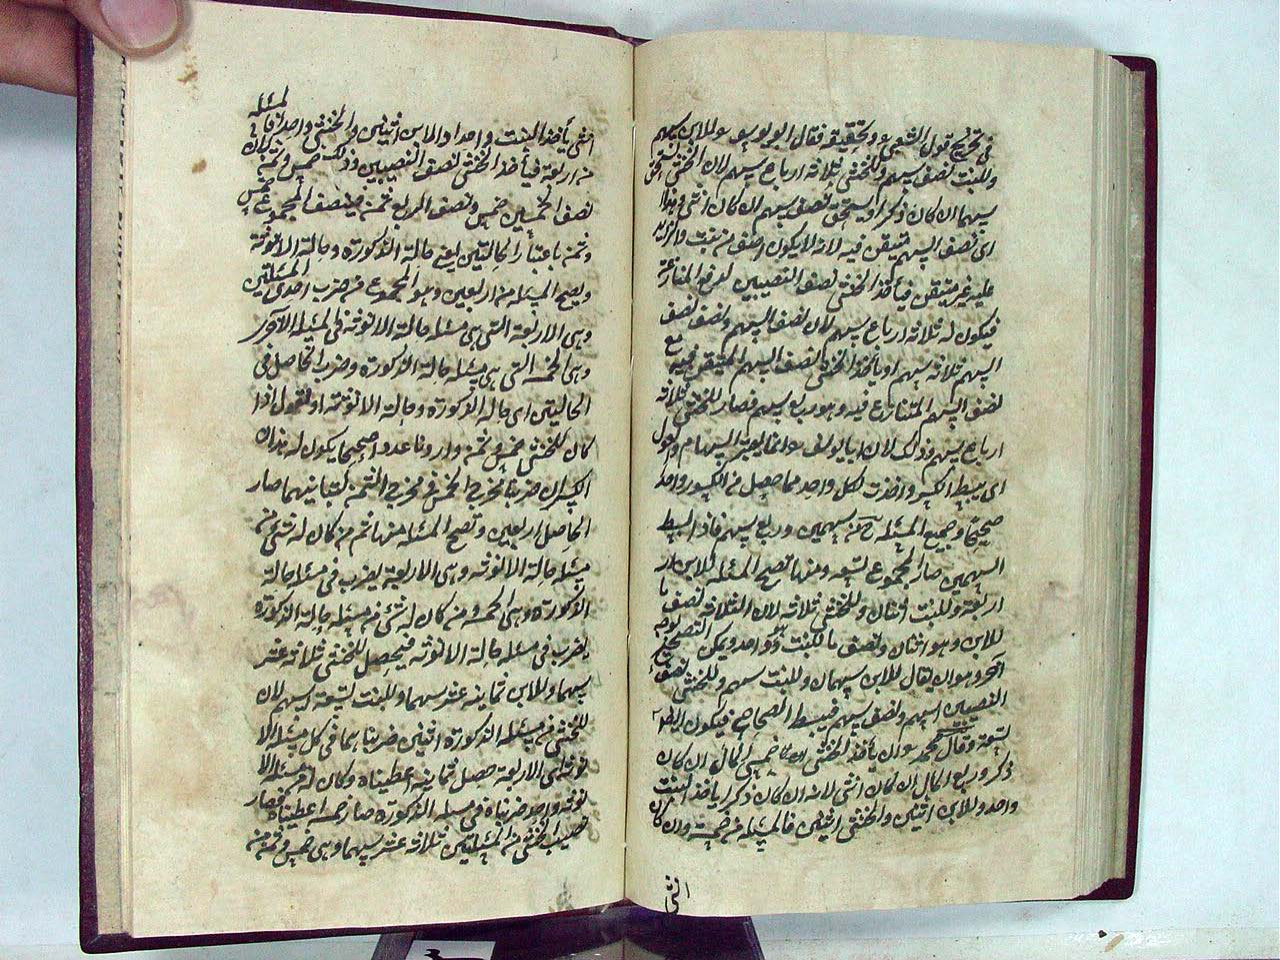 في تخريج قول الشعبي وتحقيقه فقال ابو يوسف للابن سهم
وللبنت نصف سهم وللخنثى ثلاثة ارباع سهم لان الخنثى يستحق
سهما ان كان ذكرا ويستحق نصف سهم ان كان انثى وهذا
اى نصف السهم متيقن فيه لانه لا يكون اضعف من بنت والزائد
عليه غير متيقن فيأخذ الخنثى نصف النصيبين لدفع المنازعة
فيكون له ثلاثة ارباع سهم لان نصف السهم ونصف نصف
السهم ثلاثة سهم او يأخذ الخنثى نصف السهم المتيقن فيه مع
نصف السهم المتنازع فيه وهو ربع سهم فصار للخنثى ثلاثة
ارباع سهم وذلك لان ابا يوسف انما يعتبر السهام والعول
اى يبسط الكسر واخذت لكل واحد مما حصل من الكسور واحدا
صحيحا وجميع المسئلة ح من سهمين وربع سهم فاذا بسط
السهمين صار المجموع تسعة ومنها تصح المسئلة للابن
اربعة وللبنت اثنان وللخنثى ثلاثة لان الثلاثة نصف ما
للابن وهو اثنان ونصف ما للبنت وهو واحد ويمكن التصحيح بوجه
آخر وهو ان يقال للابن سهمان وللبنت سهم وللخنثى نصف
النصيبين سهم ونصف سهم فيبسط الصحاح فيكون
تسعة وقال محمد ان يأخذ الخنثى خمسى المال ان كان
ذكرا وربع المال ان كان انثى لانه ان كان ذكرا يأخذ البنت
واحدا وللابن اثنين والخنثى اثنين فالمسئلة من خمسة وان كان
انثى
انثى يأخذ البنت واحدا والابن اثنين والخنثى واحدا فالمسئلة
من اربعة فيأخذ الخنثى نصف النصيبين وذلك خمس وثمن لان
نصف الخمسين خمس ونصف الربع ثمن فنصف المجموع خمس
وثمن باعتبار الحالتين يعنى حالة الذكورة وحالة الانوثة
ويصح المسئلة من اربعين وهو المجموع من ضرب احدى المسئلتين
وهى الاربعة التى هى مسئلة حالة الانوثة فى المسئلة الاخرى
وهى الخمسة التى هى مسئلة حالة الذكورة وضرب الحاصل فى
الحالتين اى حالة الذكورة وحالة الانوثة او نقول اذا
كان للخنثى خمس وثمن واردنا عددا صحيحا يكون له هذان
الكسران ضربنا مخرج الخمس فى مخرج الثمن لتباينهما صار
الحاصل اربعين وتصح المسئلة منها ثم من كان له شئ من
مسئلة حالة الانوثة وهى الاربعة يضرب فى مسئلة حالة
الذكورة وهى الخمسة ومن كان له شئ من مسئلة حالة الذكورة
يضرب فى مسئلة حالة الانوثة فيحصل للخنثى ثلاثة عشر
سهما وللابن ثمانية عشر سهما وللبنت تسعة اسهم لان
للخنثى من مسئلة الذكورة اثنين ضربناهما فى كل مسئلة الا
نوثة اى الاربعة حصل ثمانية اعطيناه وكان له من مسئلة الا
نوثة واحد ضربناه فى مسئلة الذكورة صار خمسة اعطيناه فصار
نصيب الخنثى من المسئلتين ثلاثة عشر سهما وهى خمس وثمن من